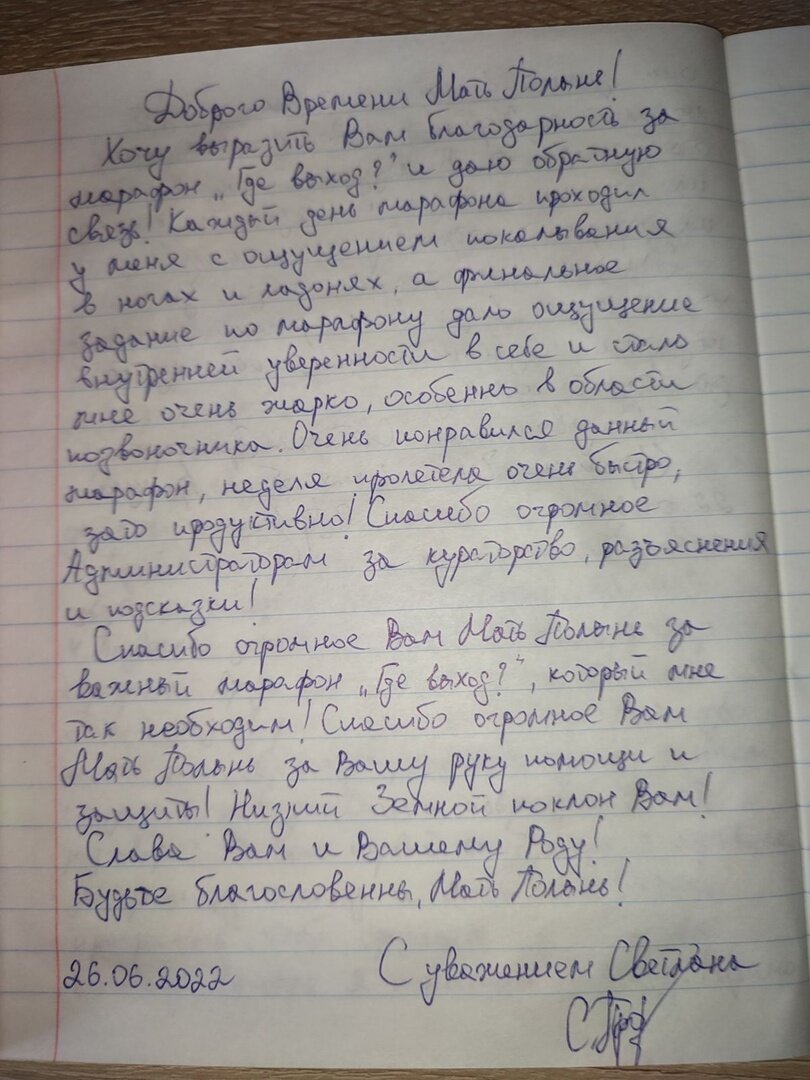 Доброго Времени Мать Полынь!
Хочу выразить Вам благодарность за
марафон „Где выход?" и даю обратную
связь! Каждый день марафона проходил
у меня с ощущением покалывания
в ногах и ладонях, а финальное
задание по марафону дало ощущение
внутренней уверенности в себе и стало
мне очень жарко, особенно в области
позвоночника. Очень понравился данный
марафон, неделя пролетела очень быстро,
зато продуктивно! Спасибо огромное
Администраторам за кураторство, разъяснения
и подсказки!
Спасибо огромное Вам Мать Полынь за
важный марафон „Где выход?", который мне
так необходим! Спасибо огромное Вам
Мать Полынь за Вашу руку помощи и
защиты! Низкий Земной поклон Вам!
Слава Вам и Вашему Роду!
Будьте благословенны, Мать Полынь!
26.06.2022 С уважением Светлана